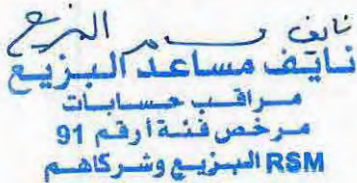 نايف مساعد البزيع
مراقب حسابات
مرخص فئة أ رقم 91
RSM البزيع وشركاهم